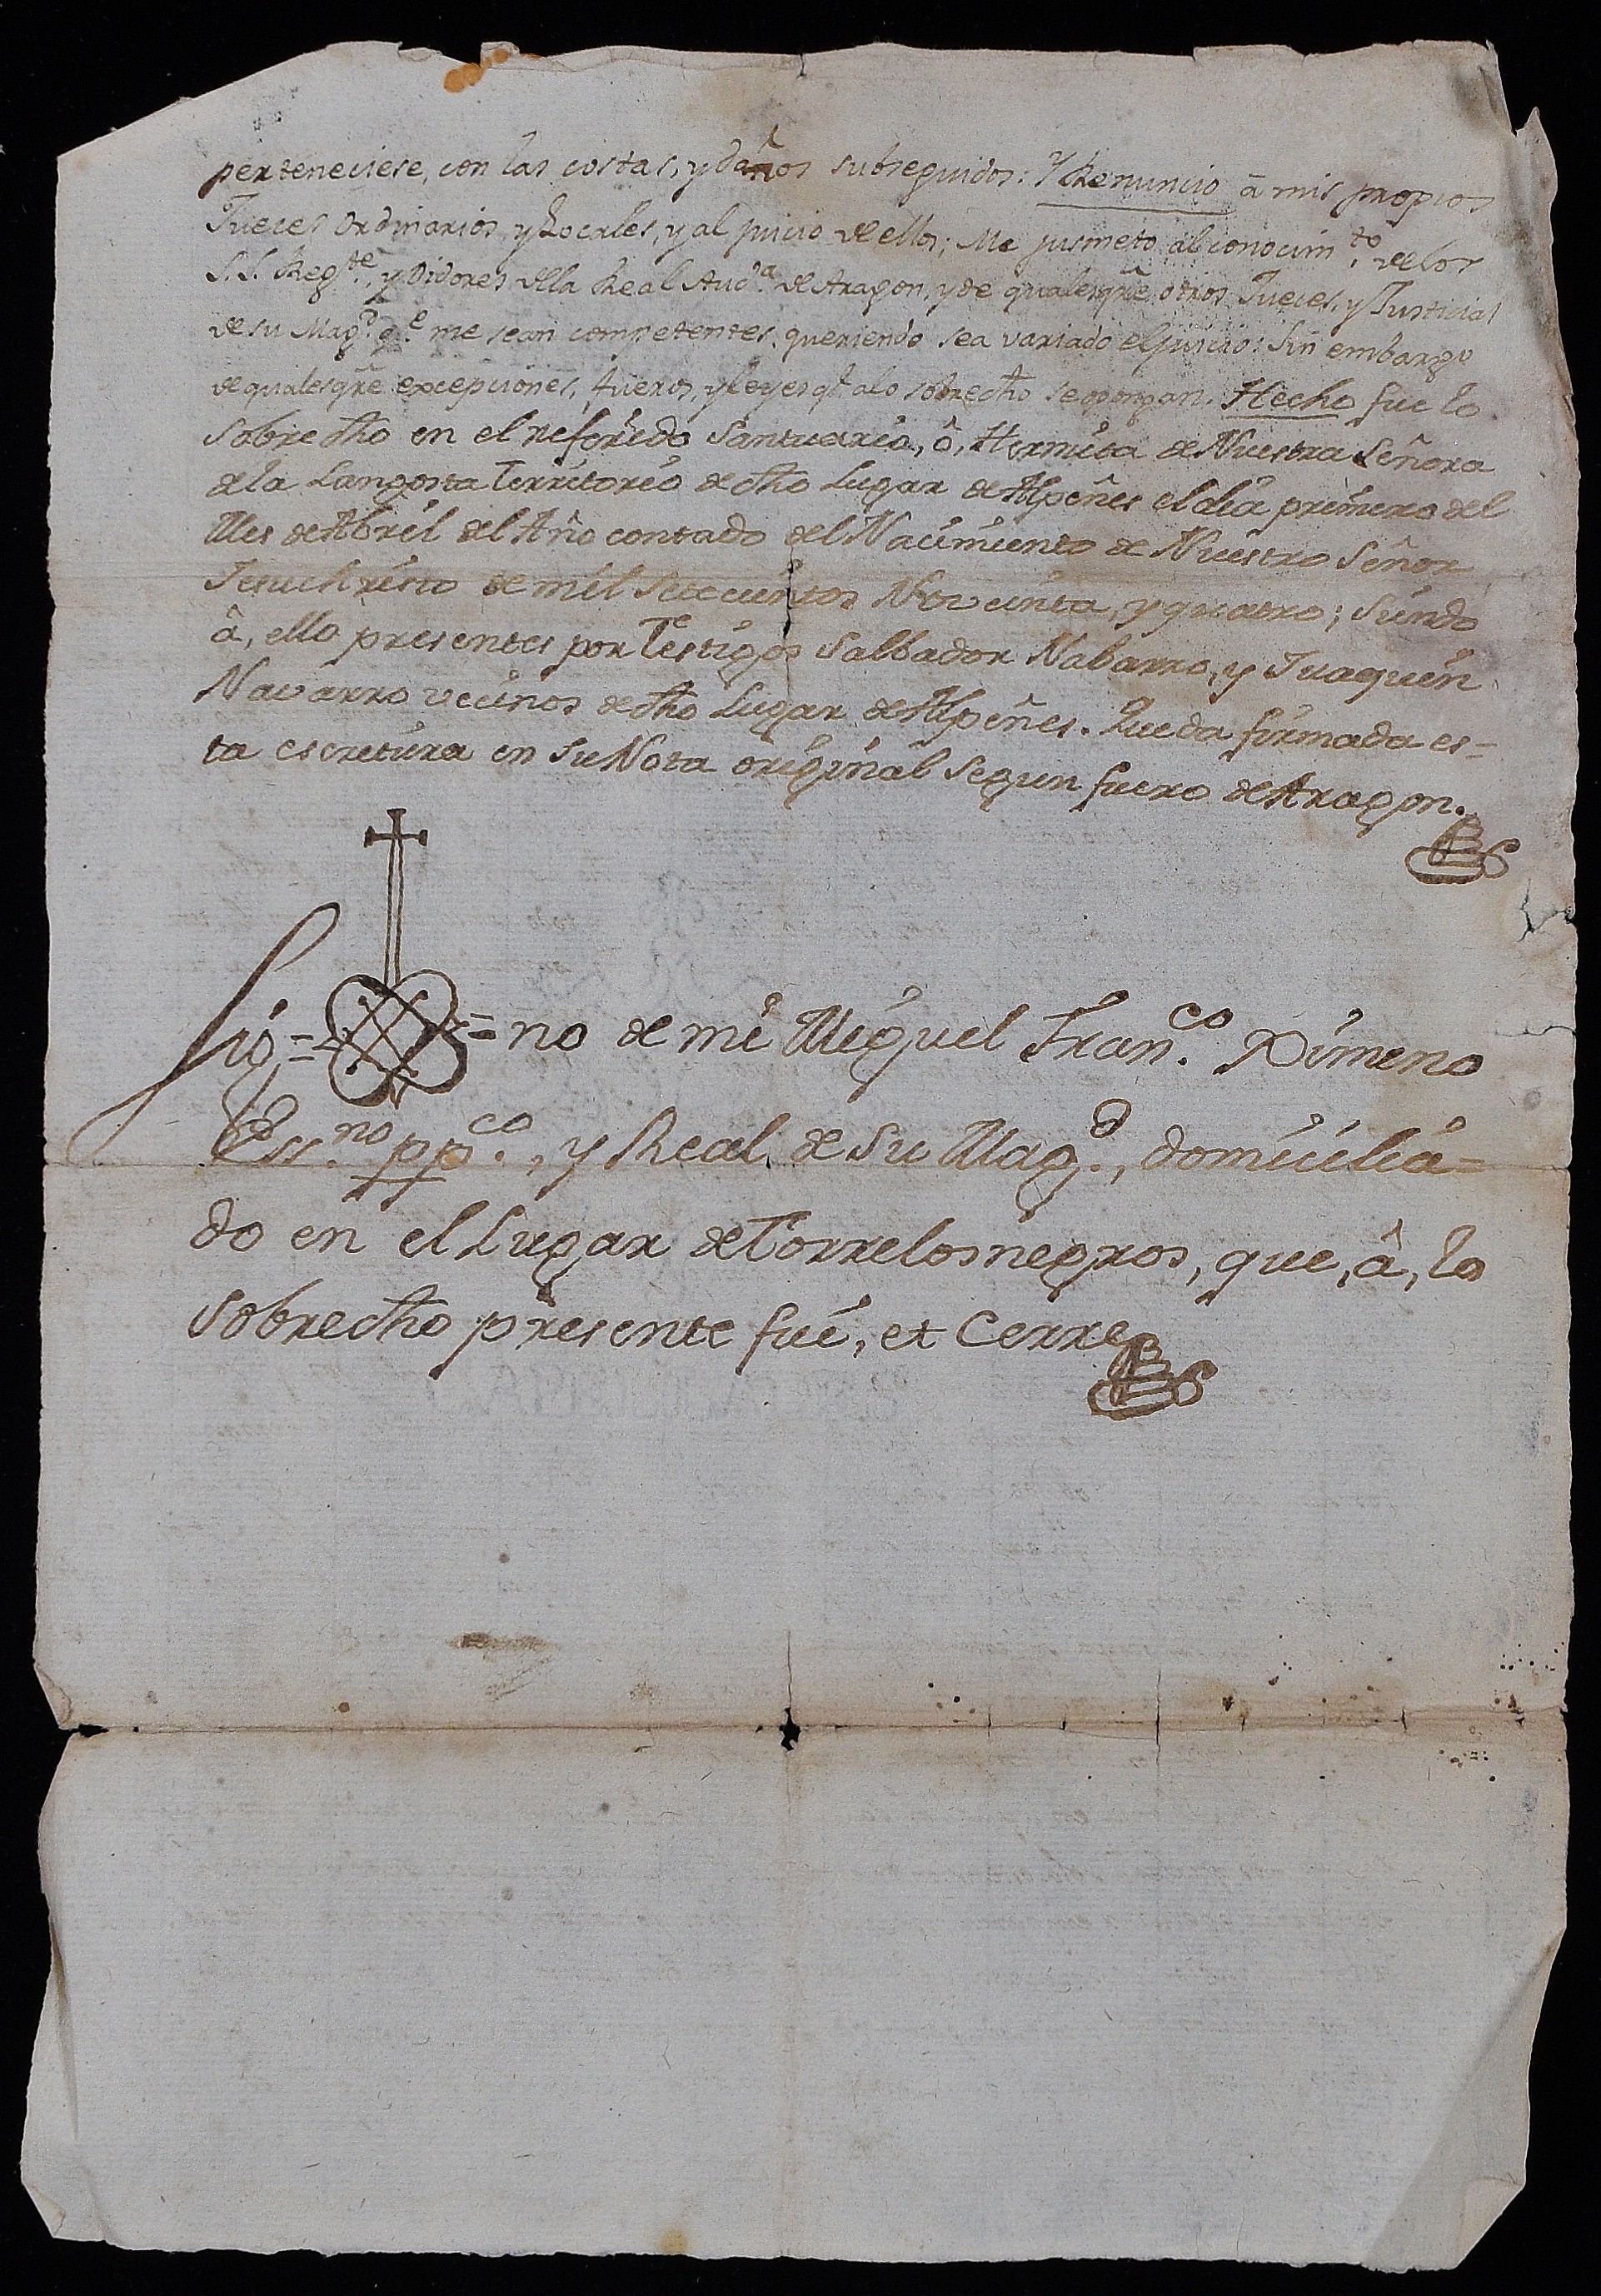 perteneciese, con las costas, y daños subseguidos: Y Renuncio â mis propios
Jueces ordinarios, y Locales, y al juicio de ellos; Me jusmeto al conocim.to de los
S.S. Reg.te, y Oidores de la Real Aud.a de Aragon, y de qualesqe. otros Jueces, y Justicias
de su Mag.d q.e me sean competentes, queriendo sea variado el juicio: Sin embargo
de qualesqe. excepciones, fueros, y Leyes q.e a lo sobredho se opongan. Hecho fue lo
sobredho en el referido Santuario, ô, Hermita de Nuestra Señora
de la Langosta Territorio de dho Lugar de Alpeñes el dia primero del
Mes de Abril del Año contado del Nacimiento de Nuestro Señor
Jesuchristo de mil Setecientos Noventa, y quatro; Siendo
â, ello presentes por Testigos Salbador Nabarro, y Juaquin
Navarro vecinos de dho Lugar de Alpeñes. Queda firmada es=
ta escritura en su Nota original segun fuero de Aragon.
Sig= =no de mi Miguel Fran.co Ximeno
Ess.no pp.co, y Real de su Mag.d, domicilia=
do en el Lugar de Torrelosnegros, que, â, lo
sobredho presente fué, et Cerre